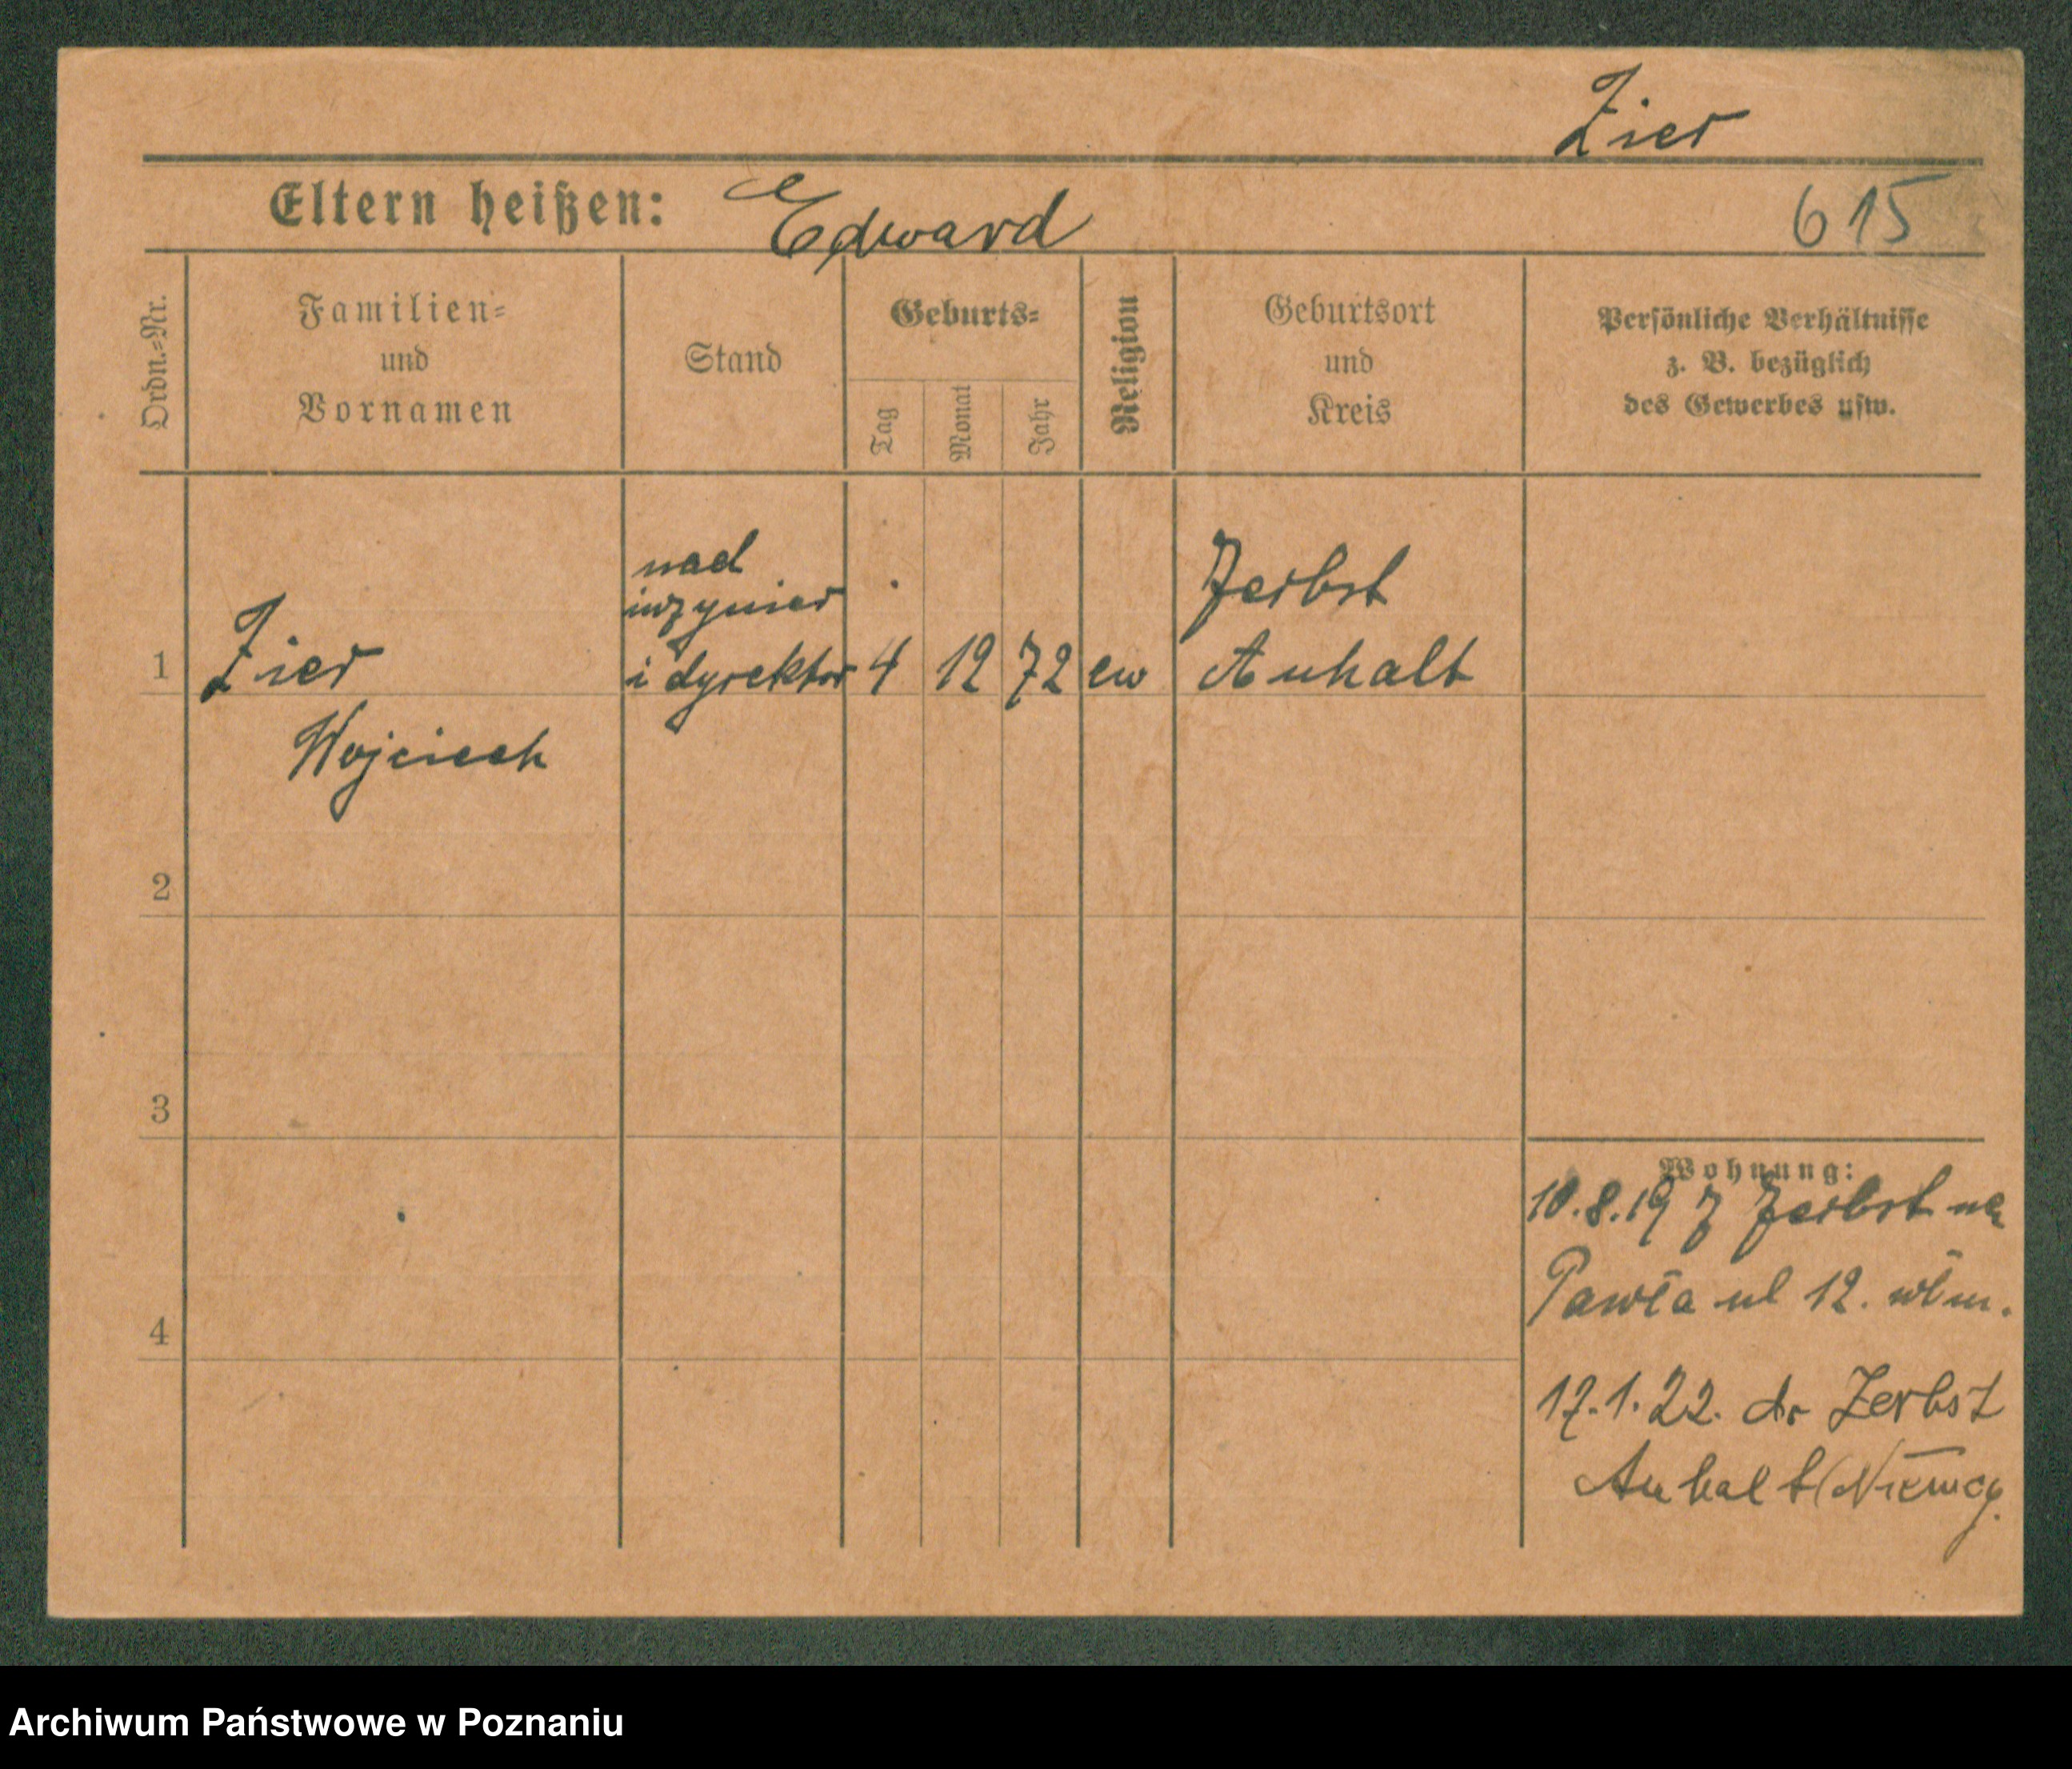 Zier
Eltern heißen: Edward
615
Ordn.=Nr.
Familien=
und
Vornamen
Stand
Geburts=
Tag
Monat
Jahr
Religion
Geburtsort
und
Kreis
Persönliche Verhältnisse
z. B. bezüglich
des Gewerbes usw.
nad
inzynier
i dyrektor
1
Zier
Wojciech
4 12 72
ew
Zerbst
Anhalt
2
3
4
Wohnung:
10.8.19 z Zerbst na
Pawła ul 12. wł m.
17.1.22. do Zerbst
Anhalt (Niemcy.
Archiwum Państwowe w Poznaniu